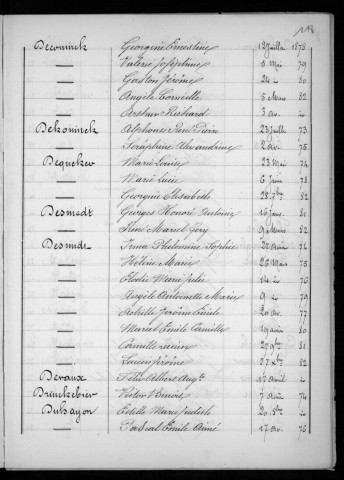 Deconinck Georgine Ernestine 12 Juillet 1878
— Valérie Joséphine 5 Mai 79
— Gaston Jérôme 24 " 80
— Angèle Corneille 5 Mars 82
— Arthur Richard 3 av. "
Dekoninck Alphonse René Pierre 23 juillet 73
— Séraphine Alexandrine 2 avr. 75
Dequeker Marie Louise 23 Mai 74
— Marie Lucie 6 Juin 78
— Georgine Elisabeth 28 9bre 82
Desmedt Georges Honoré 16 janv. 81
— René Marcel Géry 9 Mars 82
Desmidt Irma Philomène Sophie 74
— Hélène Marie 26 Mars 75
— Elodie Marie Julie 14 " 76
— Angèle Antoinette Marie 9 " 79
— Achille Jérôme Emile 20 av. 77
— Marcel Emile Camille 19 avril 80
— Camille Lucien 22 9bre 81
— Lucien Jérôme 27 Xbre 82
Devaux Félix Albert Aug. 17 Avril "
Victor 7 74
Estelle Marie Judith 20
— Emile Aimé 17 av. 76